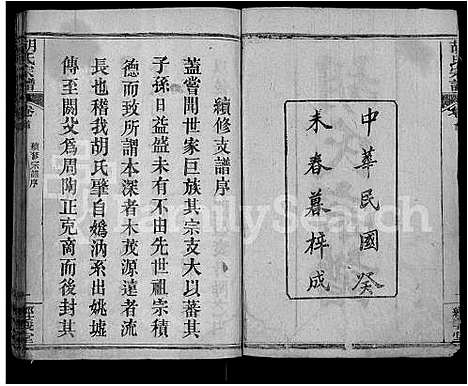 中華民國癸
未春暮梓成
續修支譜序
蓋嘗聞世家巨族其宗支大以蕃其
子孫日益盛未有不由先世祖宗積
德而致所謂本深者木茂源遠者流
長也稽我胡氏肇自媯汭系出姚墟
傳至閼父為周陶正克商而後封其
胡氏宗譜
續修宗譜序
FamilySearch